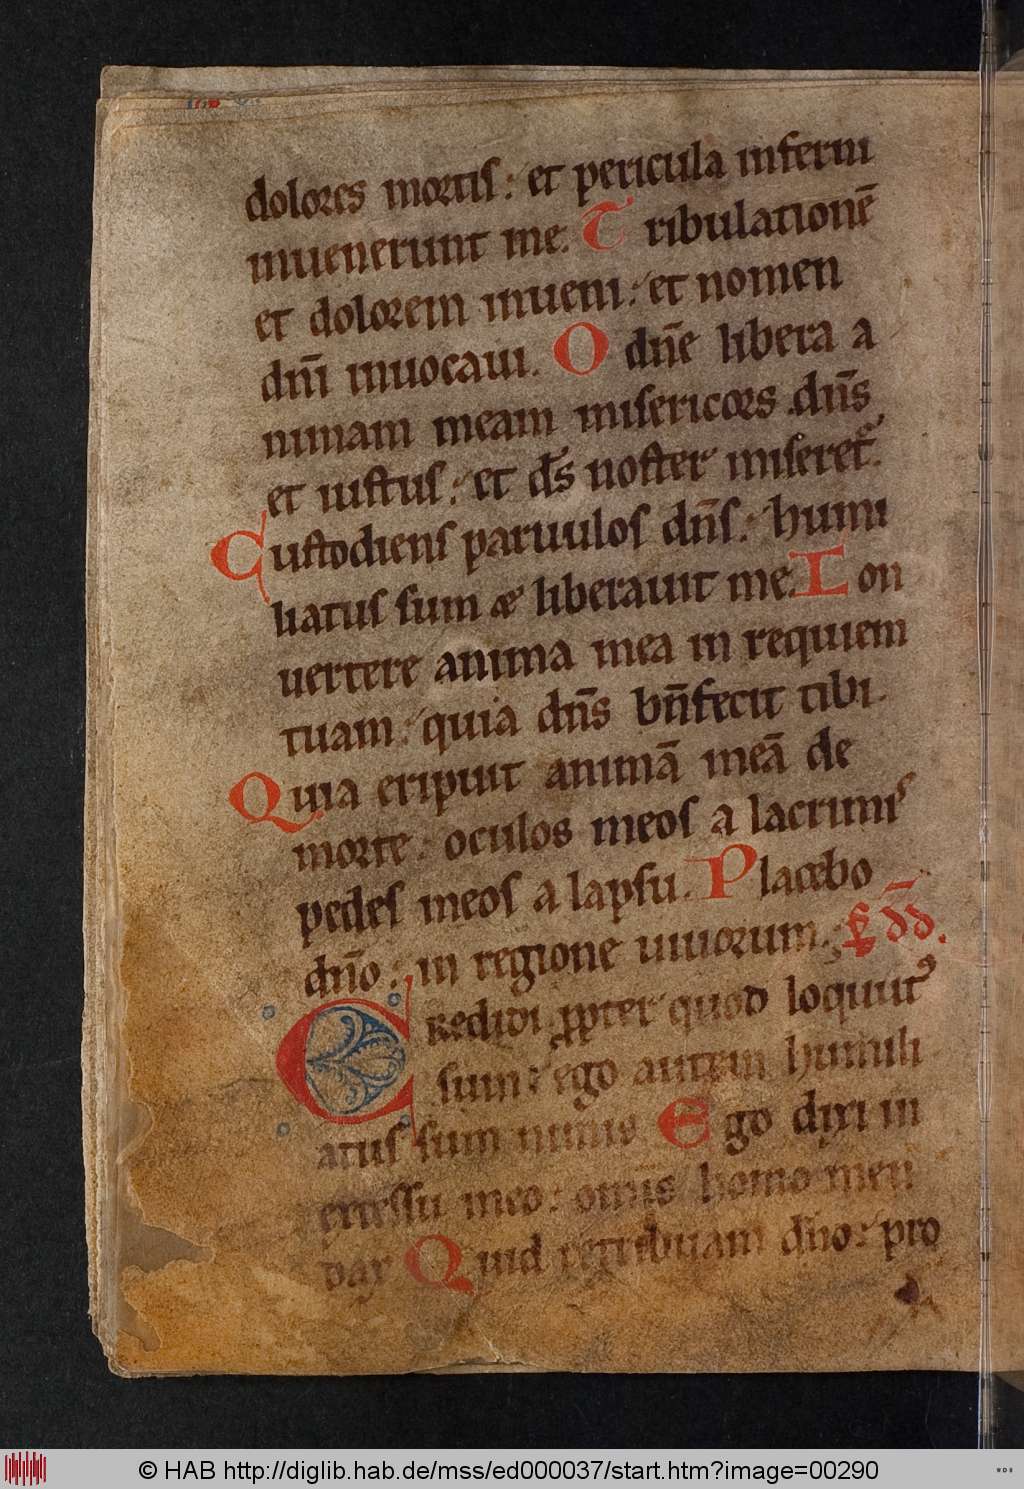 dolores mortis : et pericula inferni
inuenerunt me. Tribulationē
et dolorem inueni : et nomen
dn̄i inuocaui. O dn̄e libera a
nimam meam misericors dn̄s
et iustus : et ds̄ noster miseret᷑.
Custodiens paruulos dn̄s : humi
liatus sum & liberauit me. Con
uertere anima mea in requiem
tuam : quia dn̄s bn̄fecit tibi.
Quia eripuit animā meā de
morte : oculos meos a lacrimis
pedes meos a lapsu. Placebo
dn̄o : in regione uiuorum. p̄s dd̄.
Credidi ꝓpter quod locutus
sum : ego autem humili
atus sum nimis. Ego dixi in
excessu meo : omīs homo men
dax Quid retribuam dn̄o : pro
© HAB http://diglib.hab.de/mss/ed000037/start.htm?image=00290